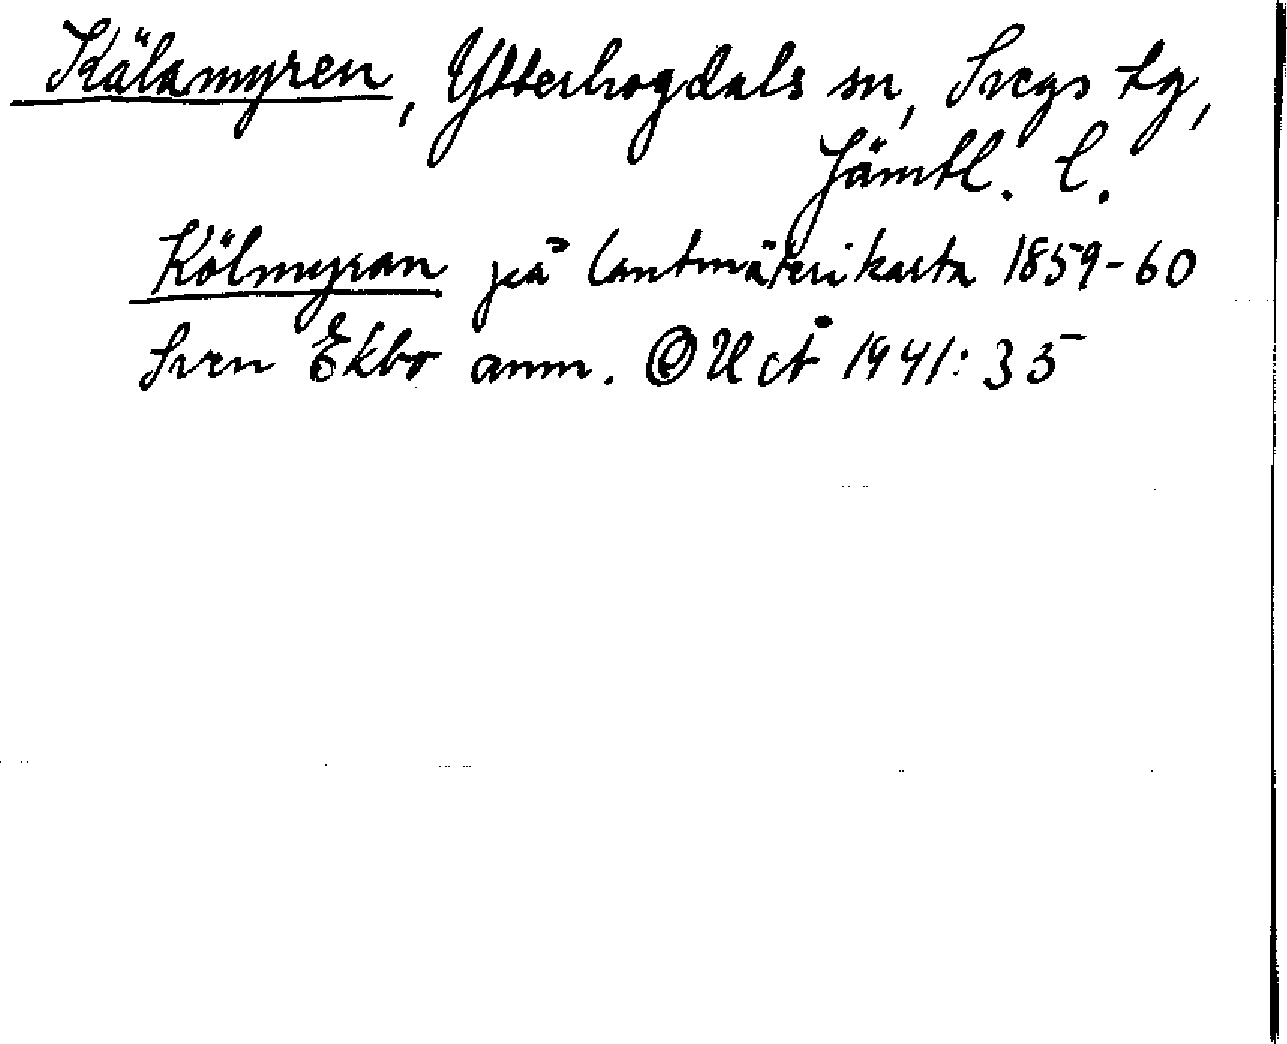 Kälamyren, Ytterhogdals sn, Svegs tg,
Jämtl. l.
Kölmyran på lantmäterikarta 1859-60
Sven Ekbo anm. 1941: 35